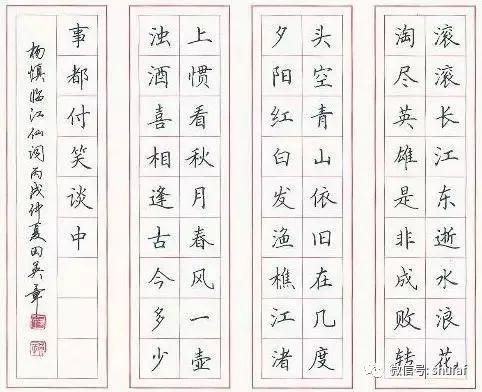 滚滚长江东逝水浪花
淘尽英雄是非成败转
头空青山依旧在几度
夕阳红白发渔樵江渚
上惯看秋月春风一壶
浊酒喜相逢古今多少
事都付笑谈中
杨慎临江仙词丙戌仲夏田英章
微信号: shufaf